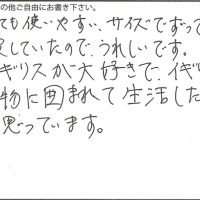 の他ご自由にお書き下さい。
ても使いやすい、サイズでずって
していたので、うれしいです。
ギリスが大好きで、イギ
物に囲まれて生活した
思っています。